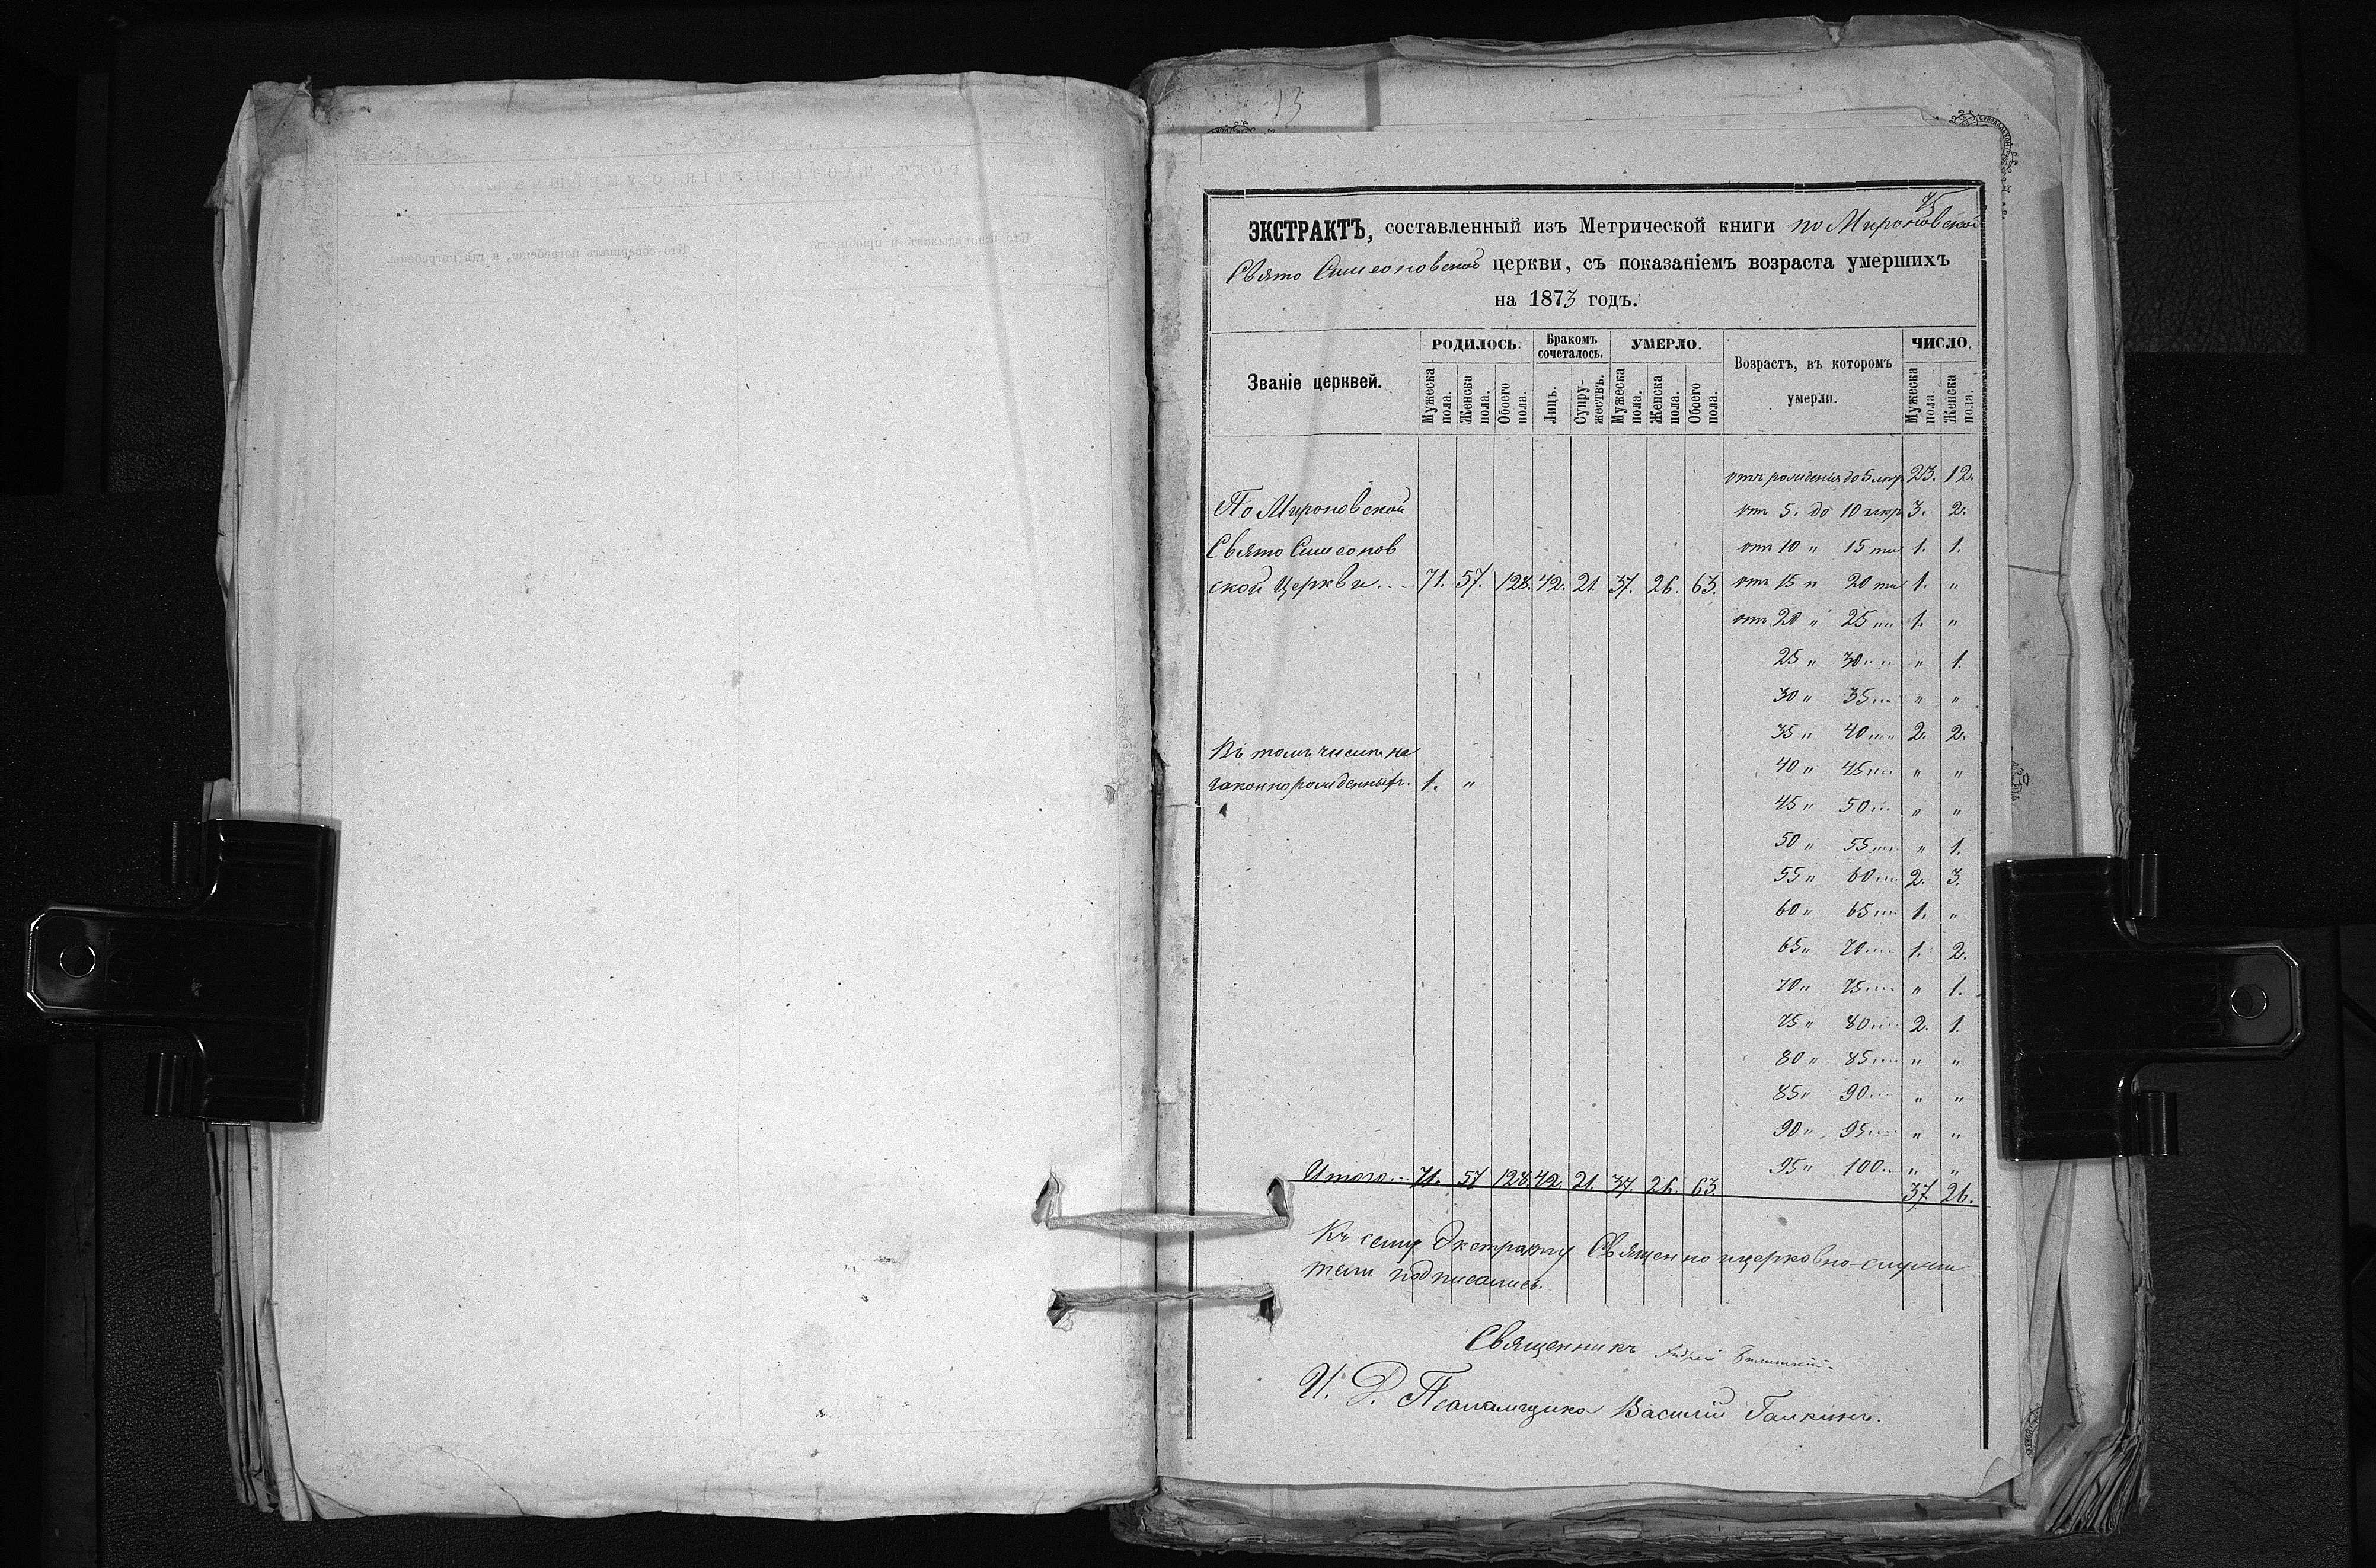 13
45
ЭКСТРАКТЪ, составленный изъ Метрической книги по Мироновской
Свято Симеоновской церкви, съ показаніемъ возраста умершихъ
на 1873 годъ.
Званіе церквей.
РОДИЛОСЬ.
Бракомъ сочеталось.
УМЕРЛО.
Возрастъ, въ которомъ умерли.
ЧИСЛО.
Мужеска пола.
Женска пола.
Обоего пола.
Лицъ.
Супружествъ.
Мужеска пола.
Женска пола.
Обоего пола.
Мужеска пола.
Женска пола.
отъ рожденія до 5 23. 12.
По Мироновской
от 5. до 10 3. 2.
Свято Симеонов
от 10 " 15 ти 1. 1.
ской Церкви... 71. 57. 128. 42. 21. 37. 26. 63. от 15 " 20 ти 1. "
от 20 " 25 " " 1. "
25 " 30 " " " 1.
30 " 35 " " " "
35 " 40 " " 2. 2.
Въ томъ числѣ не
40 " 45 " " " "
законнорожденныхъ. 1. "
45 " 50 " " " "
50 " 55 " " " 1.
55 " 60 " " 2. 3.
60 " 65 " " 1. "
65 " 70 " " 1. 2.
70 " 75 " " " 1.
75 " 80 " " 2. 1.
80 " 85 " " " "
85 " 90 " " " "
90 " 95 " " " "
95 " 100 " " "
Итого... 71. 57 128. 42. 21. 37. 26. 63. 37. 26.
Къ сему Экстракту Священно и церковно-служи
тели подписались.
Священникъ Андрей
И. Д. Псаломщика Василій Галкинъ.